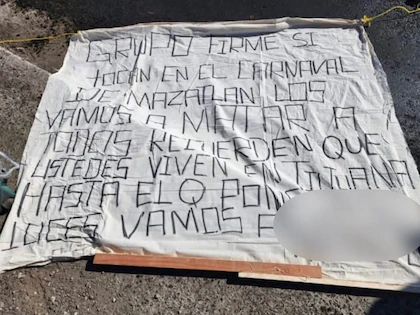 GRUPO FIRME SI
TOCAN EN EL CARNAVAL
DE MAZATLAN LOS
VAMOS A MATAR A
TODOS RECUERDEN QUE
USTEDES VIVEN EN TIJUANA
HASTA EL Q PONE
LUCES VAMOS A